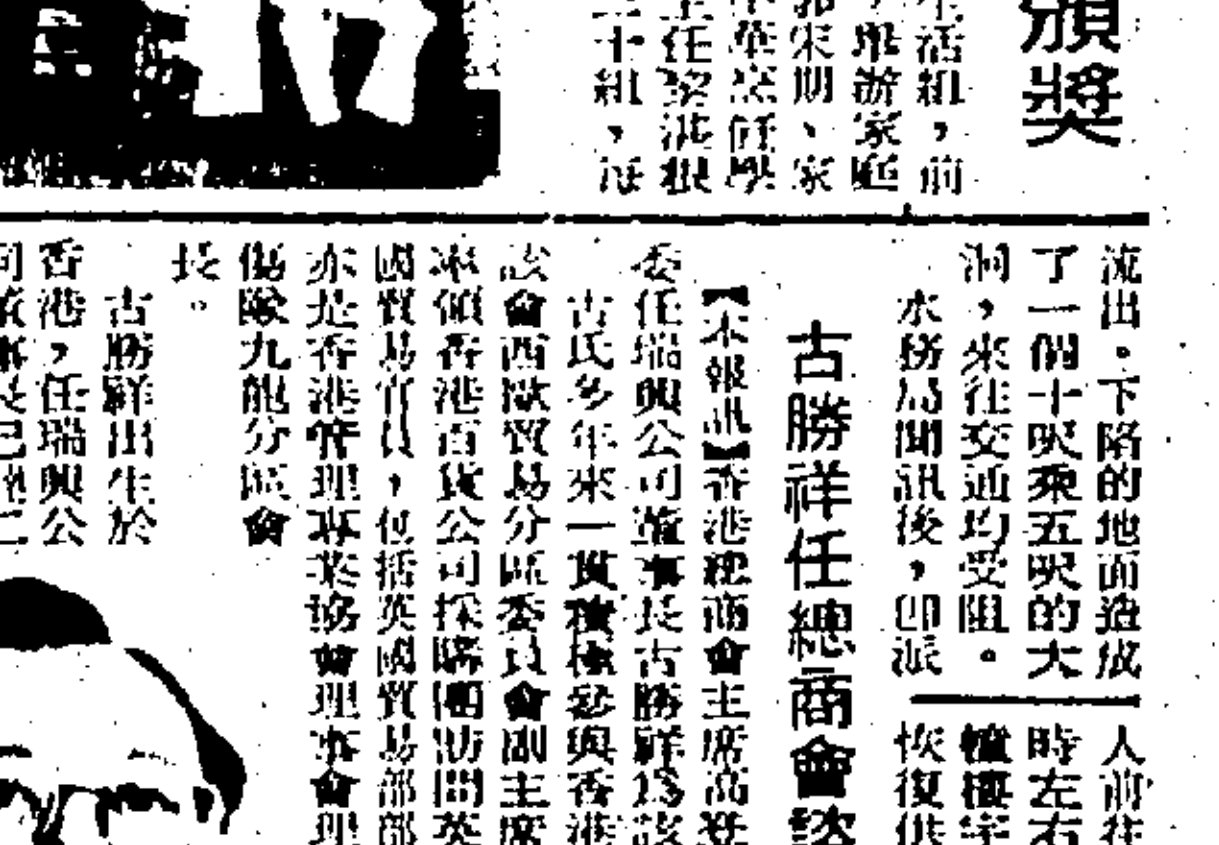 頒獎
生活組，前
舉辦家庭
郭宋期、家
主任黎港根
二十組，每
流出。下陷的地面造成
了一個十呎乘五呎的大
洞，來往交通均受阻。
水務局聞訊後，即派
人前往
時左右
幢樓宇
恢復供
古勝祥任總商會談
【本報訊】香港總商會主席高登
委任瑞興公司董事長古勝祥為該
古氏多年來一貫積極參與香港
該會西歐貿易分區委員會副主席
率領香港百貨公司採購團訪問英
國貿易官員，包括英國貿易部部
亦是香港管理專業協會理事會理
傷隊九龍分區會
長。
古勝祥出生於
香港，任瑞興公
司董事長已達二